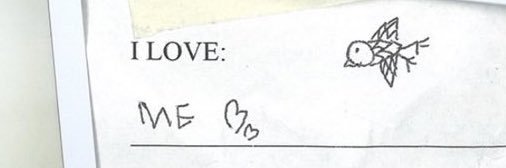 I LOVE:
ME